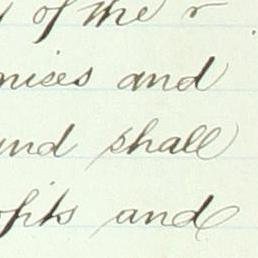 of the r
mises and
und shall
ofits and